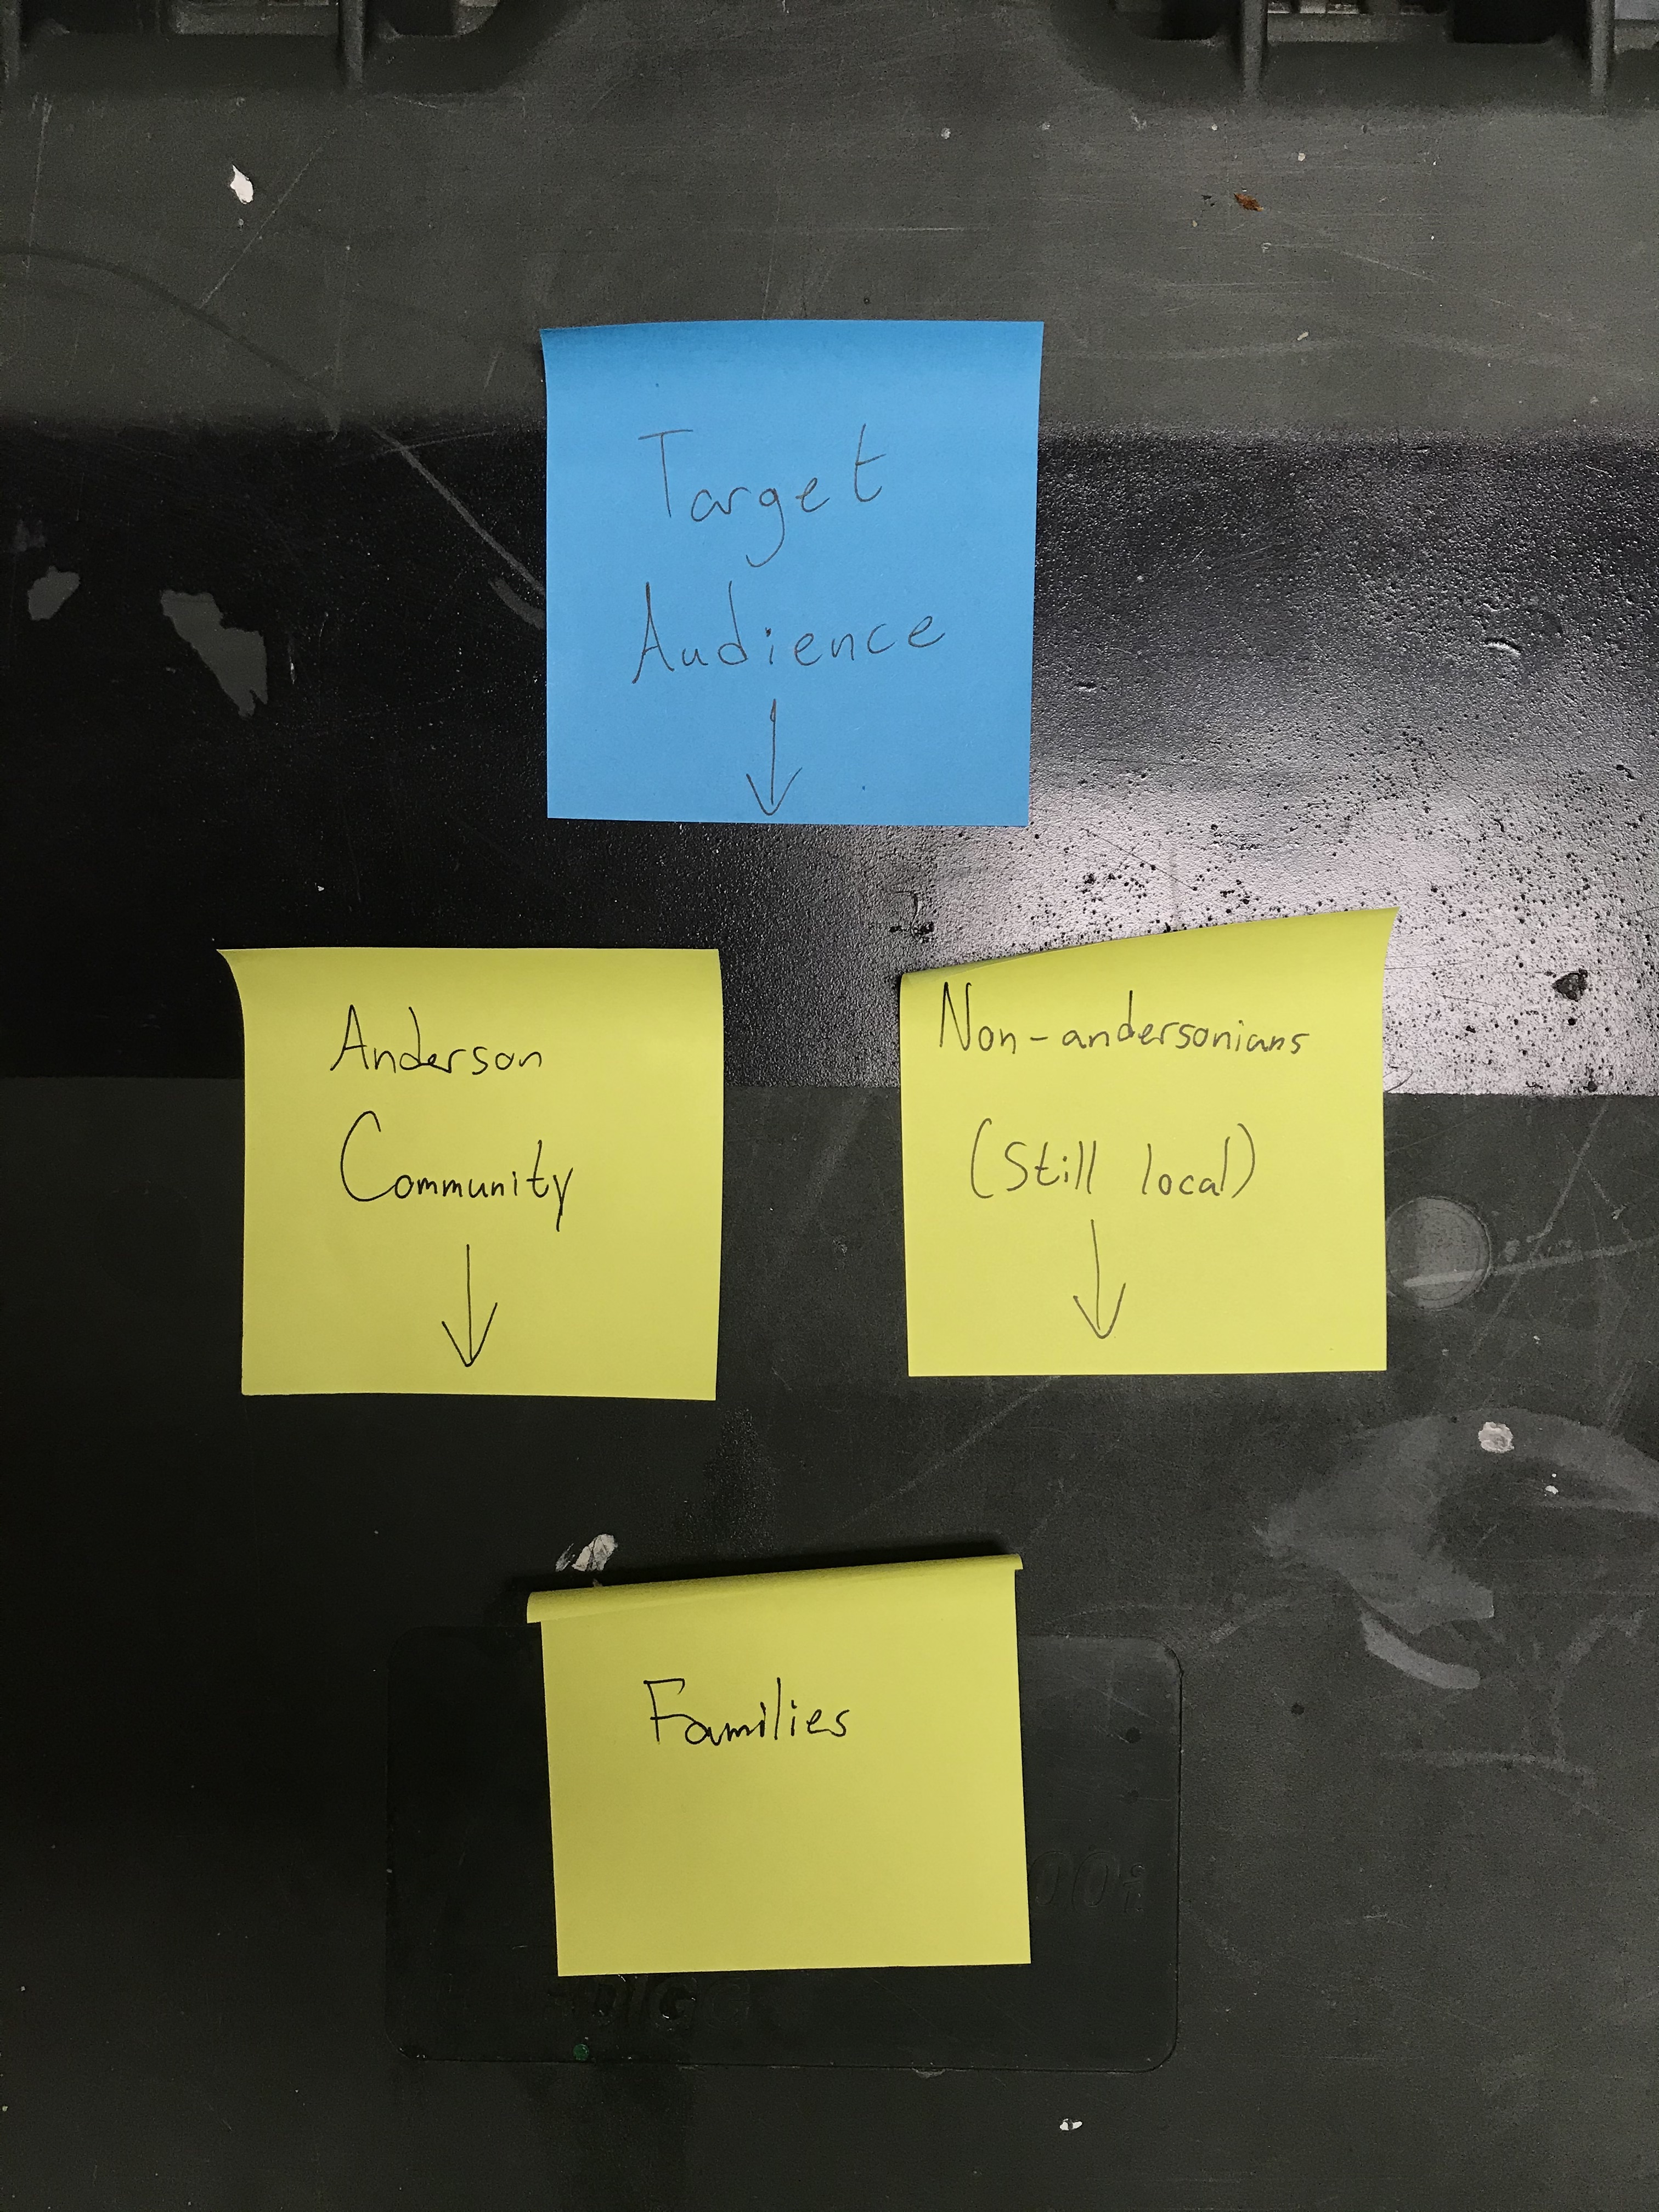 Target
Audience
Anderson
Community
Non-andersonians
(Still local)
Families